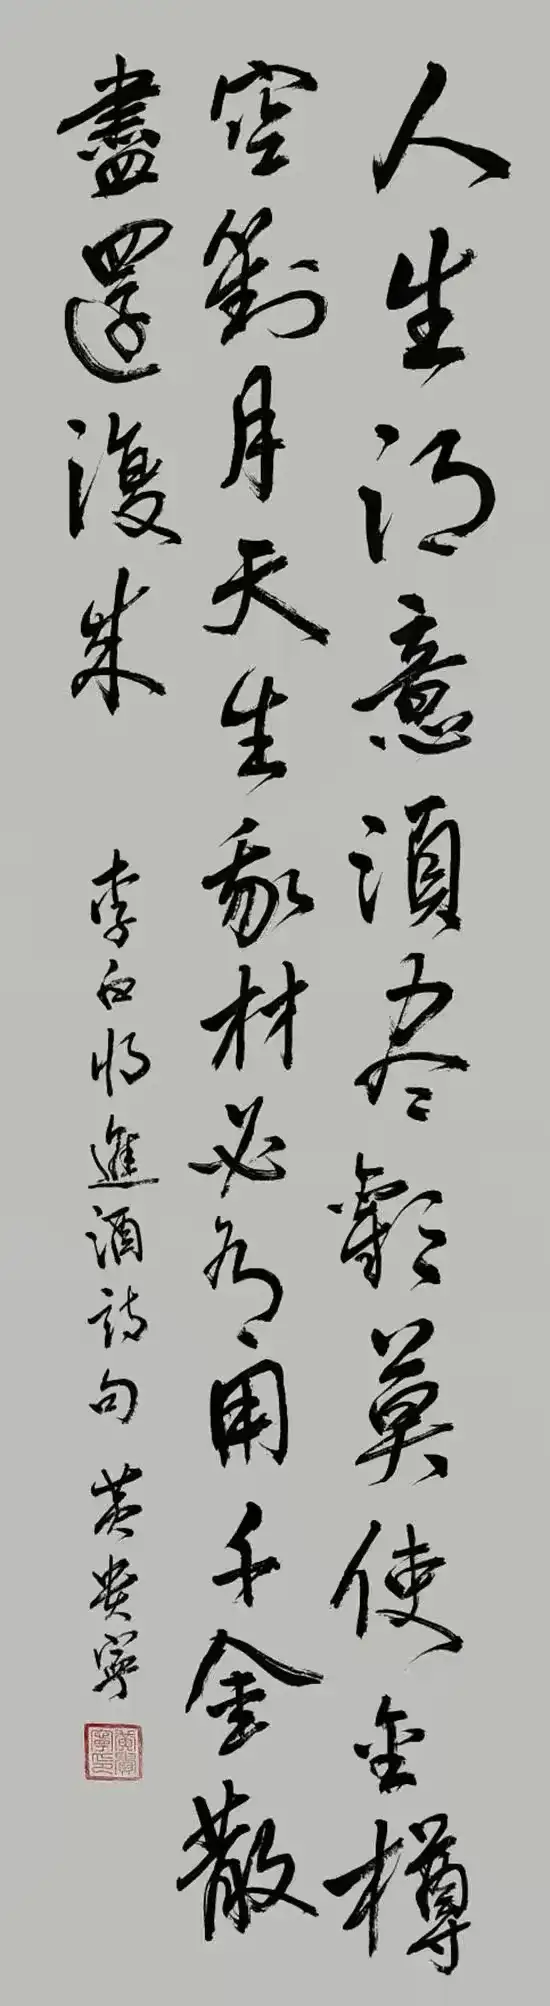 人生得意須尽歡莫使金樽
空對月天生我材必有用千金散
盡還復來
李白將進酒詩句 黃貴寧
黃貴寧印